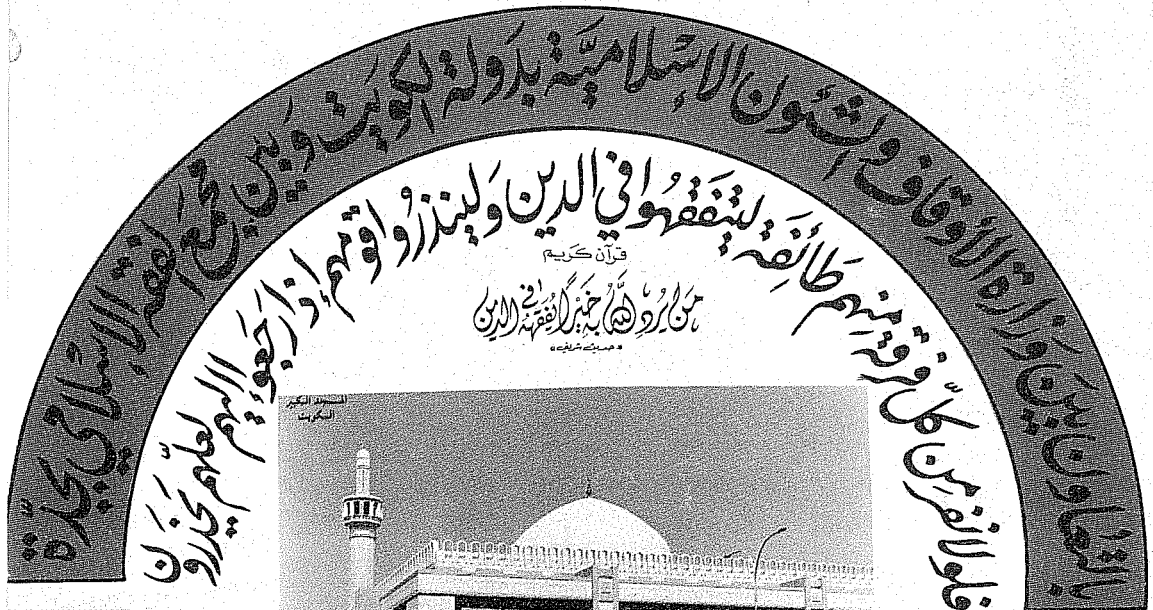 بالتعاون بين وزارة الأوقاف والشئون الإسلامية بدولة الكويت وبين مجمع الفقه الإسلامي بجدة
فلولا نفر من كل فرقة منهم طائفة ليتفقهوا في الدين ولينذروا قومهم إذا رجعوا إليهم لعلهم يحذرون
قرآن كريم
من يرد الله به خيرا يفقهه في الدين
حديث شريف
المسجد الكبير
الكويت